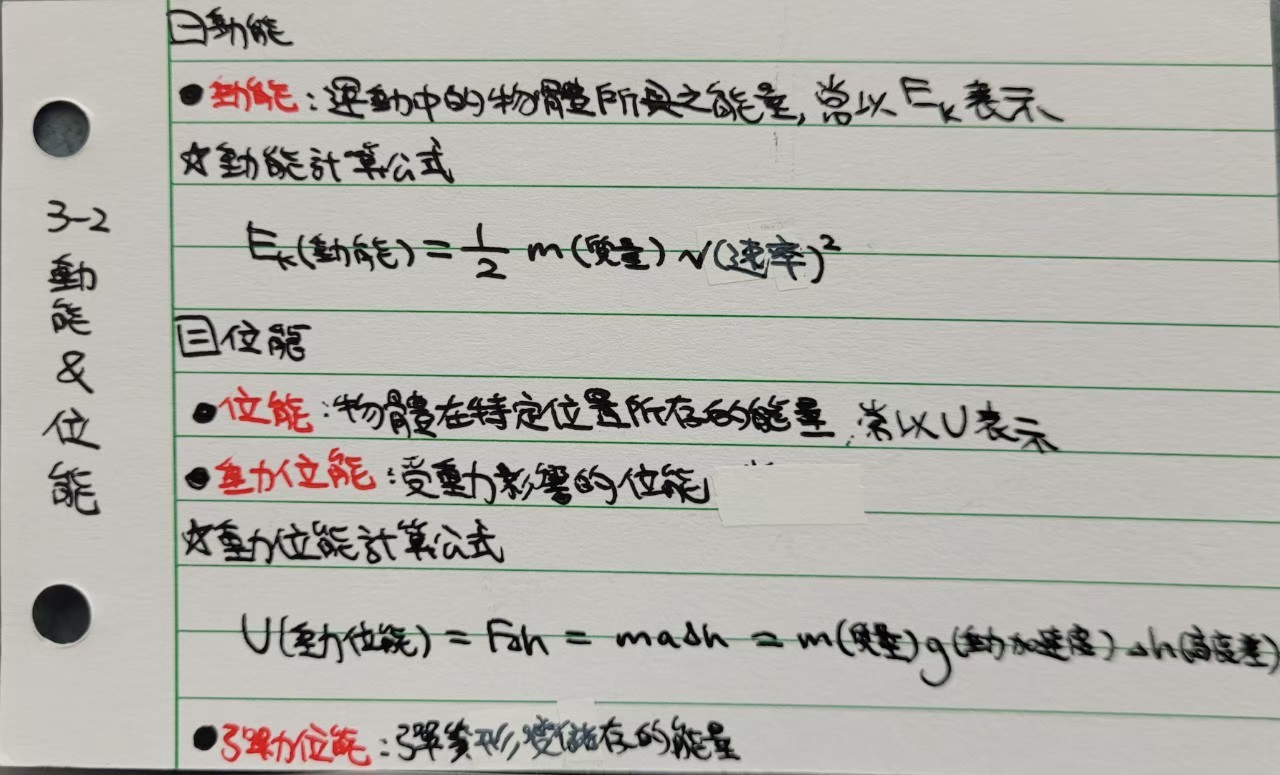 3-2動能&位能
㊀動能
●動能:運動中的物體所具之能量,常以Eₖ表示
☆動能計算公式
Eₖ(動能)=1/2 m(質量)v(速率)²
㊁位能
●位能:物體在特定位置所存的能量,常以U表示
●重力位能:受重力影響的位能
☆重力位能計算公式
U(重力位能)=FΔh=maΔh=m(質量)g(重力加速度)Δh(高度差)
●彈力位能:彈簧形變儲存的能量